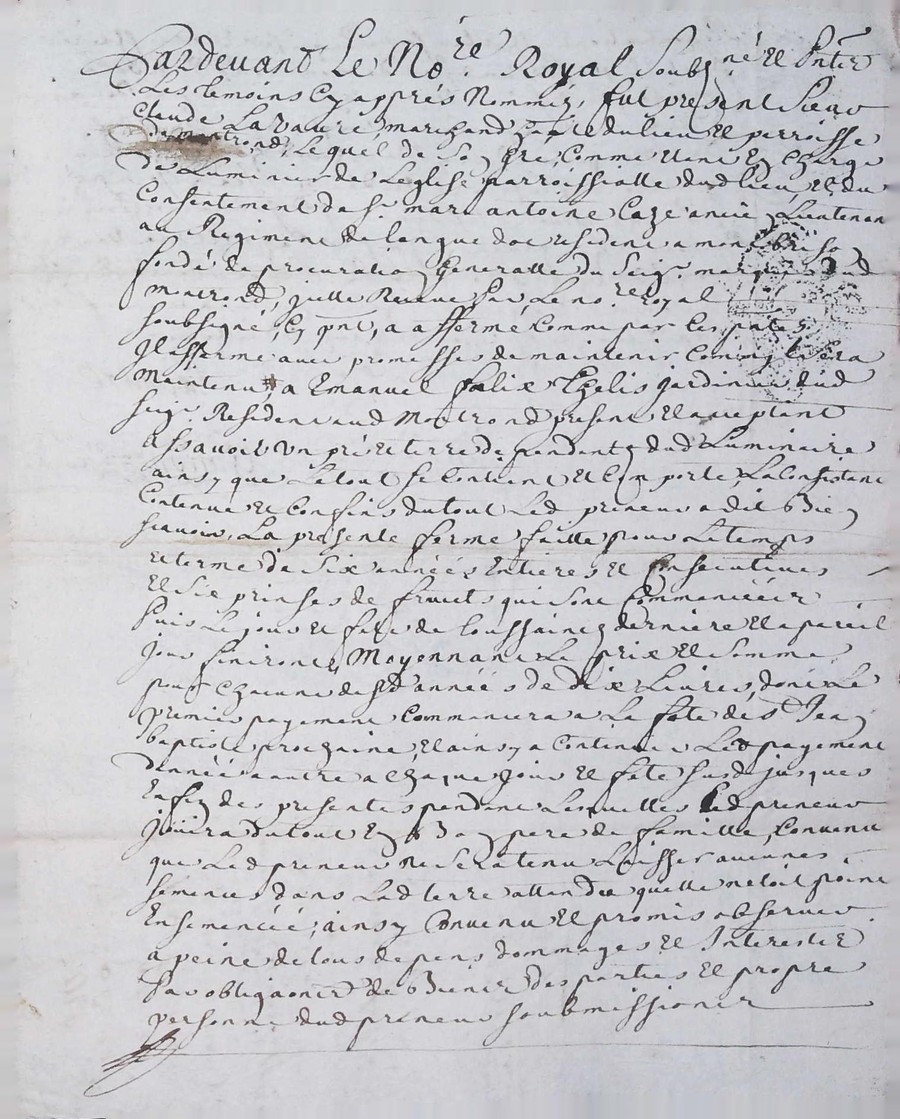 Pardevant Le No.re Royal Soubz.né Et Pnter
Les temoins Cy apprés Nommés, fut present Sieur
Claude Lavaure marchand hoste du lieu Et perroisse
de montrond, Lequel de So gre, Comme tient En Charge
de Luminier de Leglise parroissialle dud lieu, Et du
Consentement de Sr marc antoine Caze ancie Lieutenan
au Regiment de langue doc resident a montbriso
fondé de procuratio Generalle du Seigr marquis dud
montrond, Recue Par Le no.re royal
soubsigné, Cy pnt, a affermé Comme par Ces pntes
Il afferme avec promesses de maintenir Com
maintenu a Emanuel felix Thelis jardinier dud
Seigr Resident aud Montrond present Et acceptant
assavoir Un pré Et terre dependents dud Luminaire
ainsy que Le tout Se Contient Et Comporte, La Consistanc
Contenue Et Confins du tout Led preneur a dit Bie
scavoir, La presente ferme faitte pour Le temps
Et terme de Six années Entieres Et Consecutives
Et Six prinses de fruits qui Sont Commencéér
Puis Le jour Et feste de toussaincts derniere Et a pareil
jour finiront, Moyennant Le prix Et Somme
pour Chacune desd années de dix Livres, dont Le
premier payement Commencera a La fete de St Jea
baptiste prochaine Et ainsy a Continuer Led payement
dannée a autre a Chaque Jour Et fete Susd jusques
En fi des presentes pendant Lesquelles Led preneur
Jouira du tout En Bo pere de famille, Convenu
que Led preneur ne Sera tenu Laisser aucunes
Semences dans Lad terre attendu quelle netoit point
Ensemencéé, ainsy Convenu Et promis observer
a peine de tous depens dommages Et Interestz
Par obligaoner de Biener des parties Et propre
personne dud preneur Soubmissioner